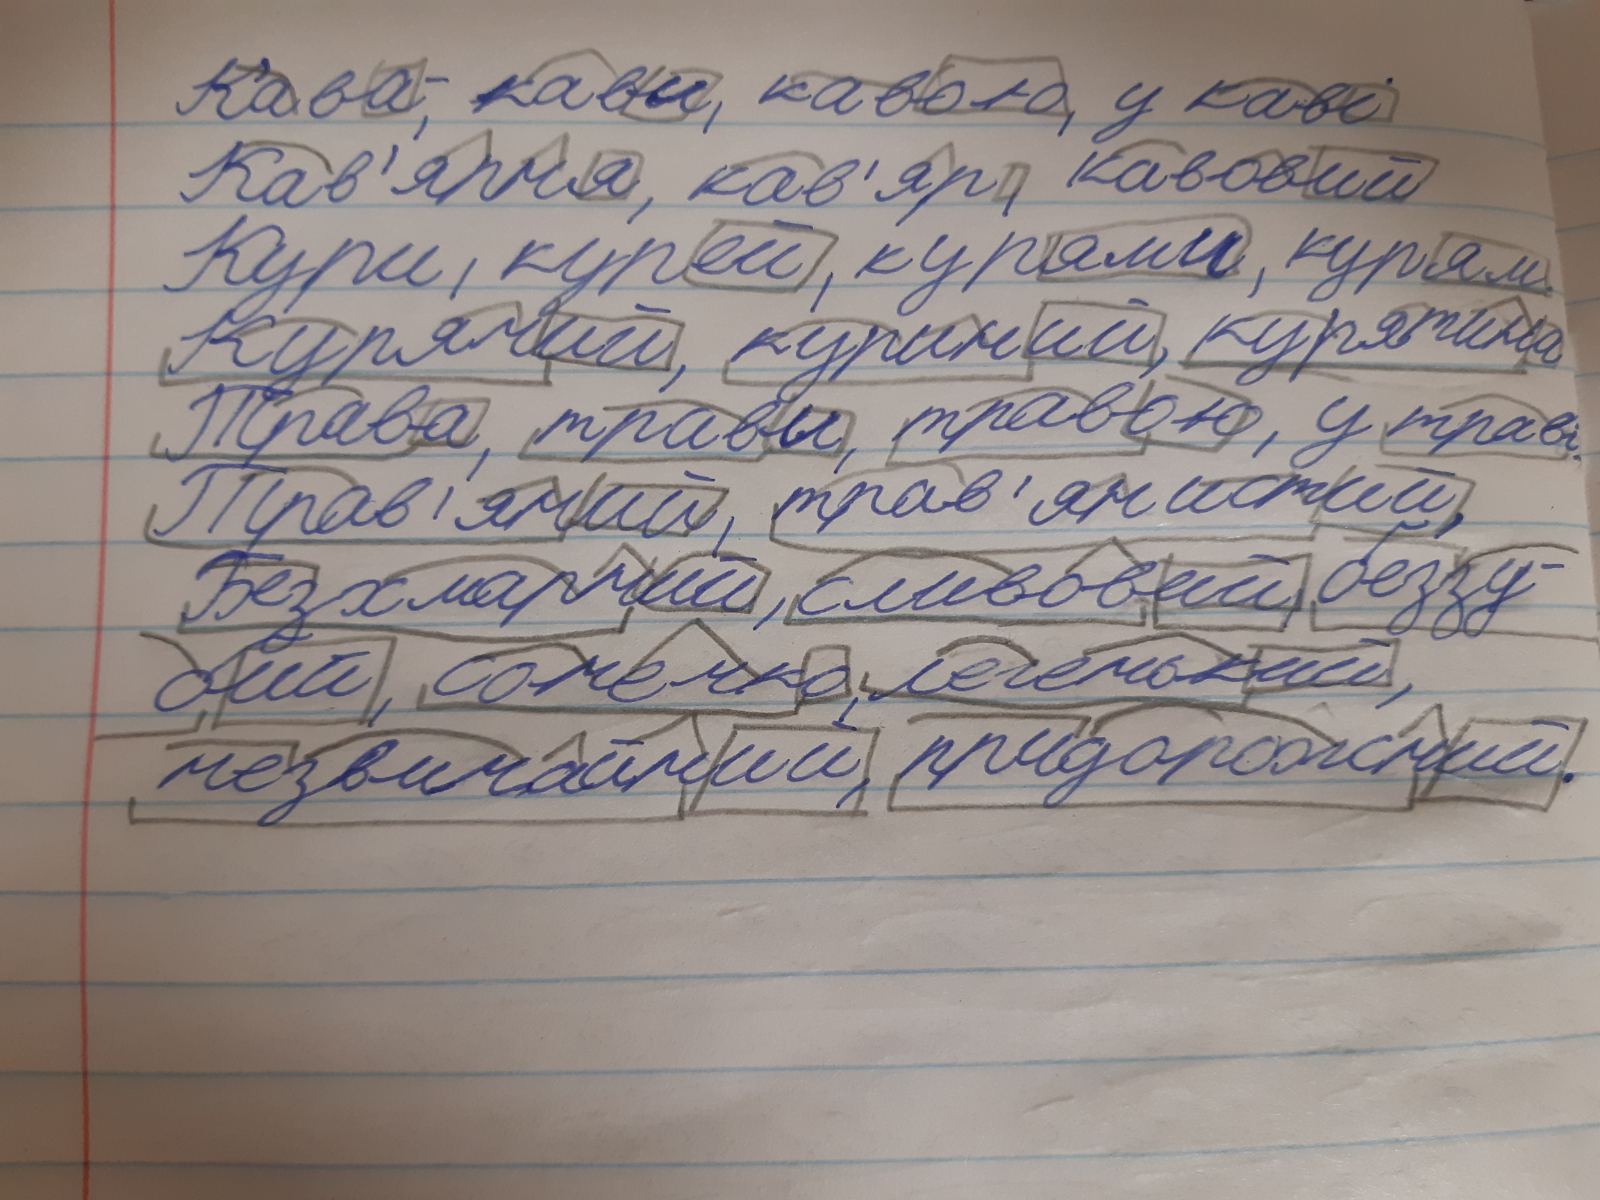 Кава, кави, кавою, у каві
Кав'ярня, кав'яр, кавовий
Кури, курей, курями, курям.
Курячий, куриний, курятина
Трава, трави, травою, у траві.
Трав'яний, трав'янистий,
Безхмарний, сливовий, беззу-
бий, сонечко, легенький,
незвичайний, придорожній.